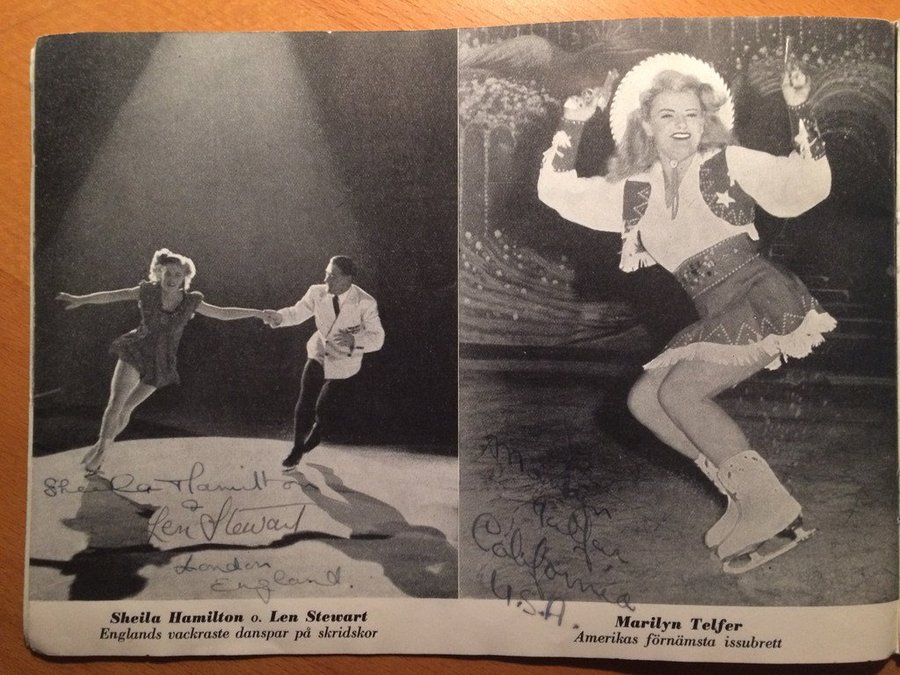 Sheila Hamilton
&
Len Stewart
London
England.
Sheila Hamilton o. Len Stewart
Englands vackraste danspar på skridskor
Marilyn
Telfer
California
U.S.A.
Marilyn Telfer
Amerikas förnämsta issubrett